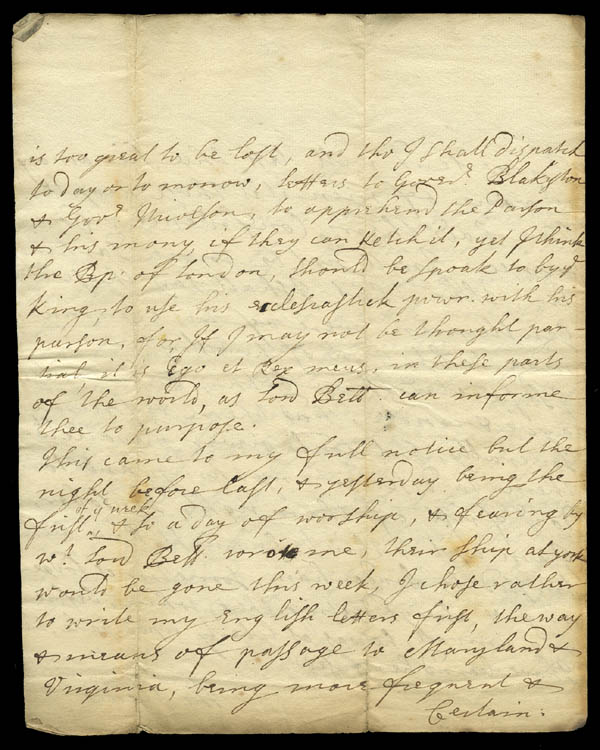 is too great to be lost, and tho I shall dispatch
to day or to morrow, letters to Goverr. Blakiston
& Govr. Nicolson, to apprehend the Parson
& his mony, if they can ketch it, yet I think
the Bp. of London, should be spoak to by ye
King to use his eclesiastick powr. with his
parson, for If I may not be thought par-
tial, it is Ego et Rex meus, in these parts
of the world, as Lord Bell. can informe
thee to purpose.
This came to my full notice but the
night before last, & yesterday being the
of ye week
first, & so a day of worship, & fearing by
wt. Lord Bell. wrote me, their ship at york
would be gone this week, I chose rather
to write my English letters first, the way
& means of passage to Maryland &
Virginia, being more frequent &
Certain.